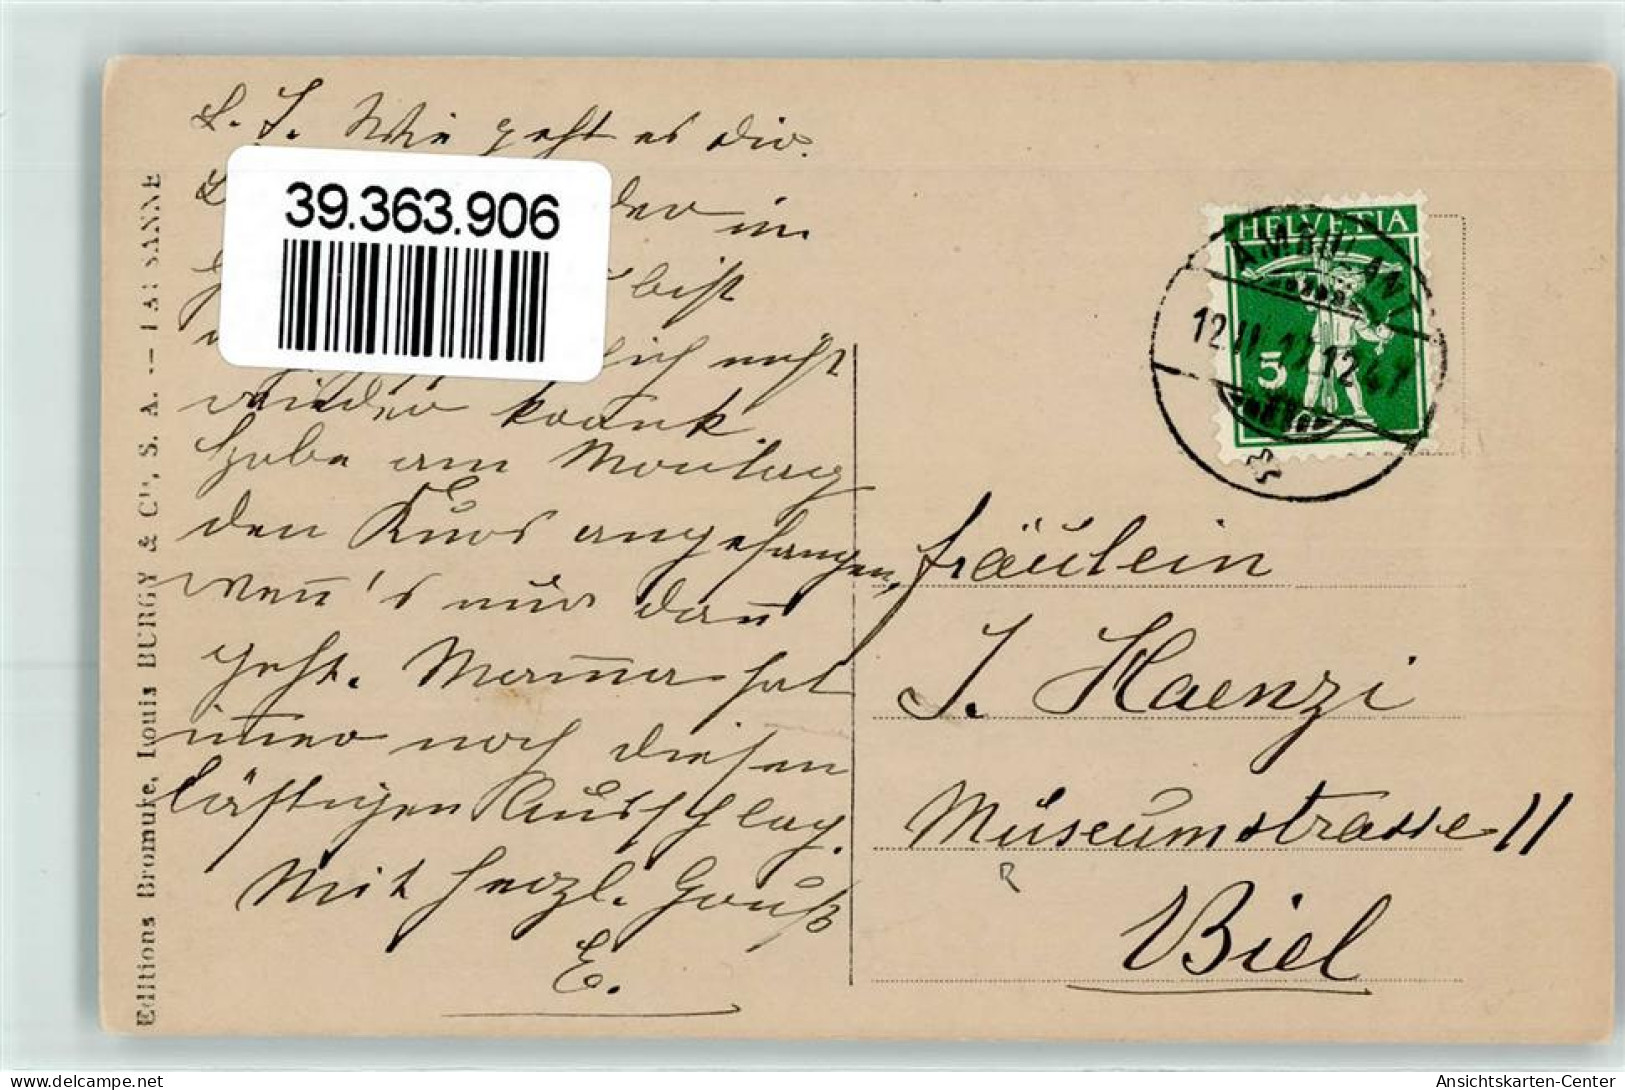 L. J. Wie geht es dir.
der im
bist
nicht
wieder krank.
Habe am Montag
den Kurs angefangen,
wenn's nur dann
geht. Mamma hat
immer noch diesen
lästigen Ausschlag.
Mit herzl. Gruß
E.
39.363.906
Editions Bromuke, Louis BURGY & Cie, S. A. — LAUSANNE
HELVETIA
5
12.II.17.12
Fräulein
J. Haenzi
Museumstrasse 11
Biel
Ansichtskarten-Center